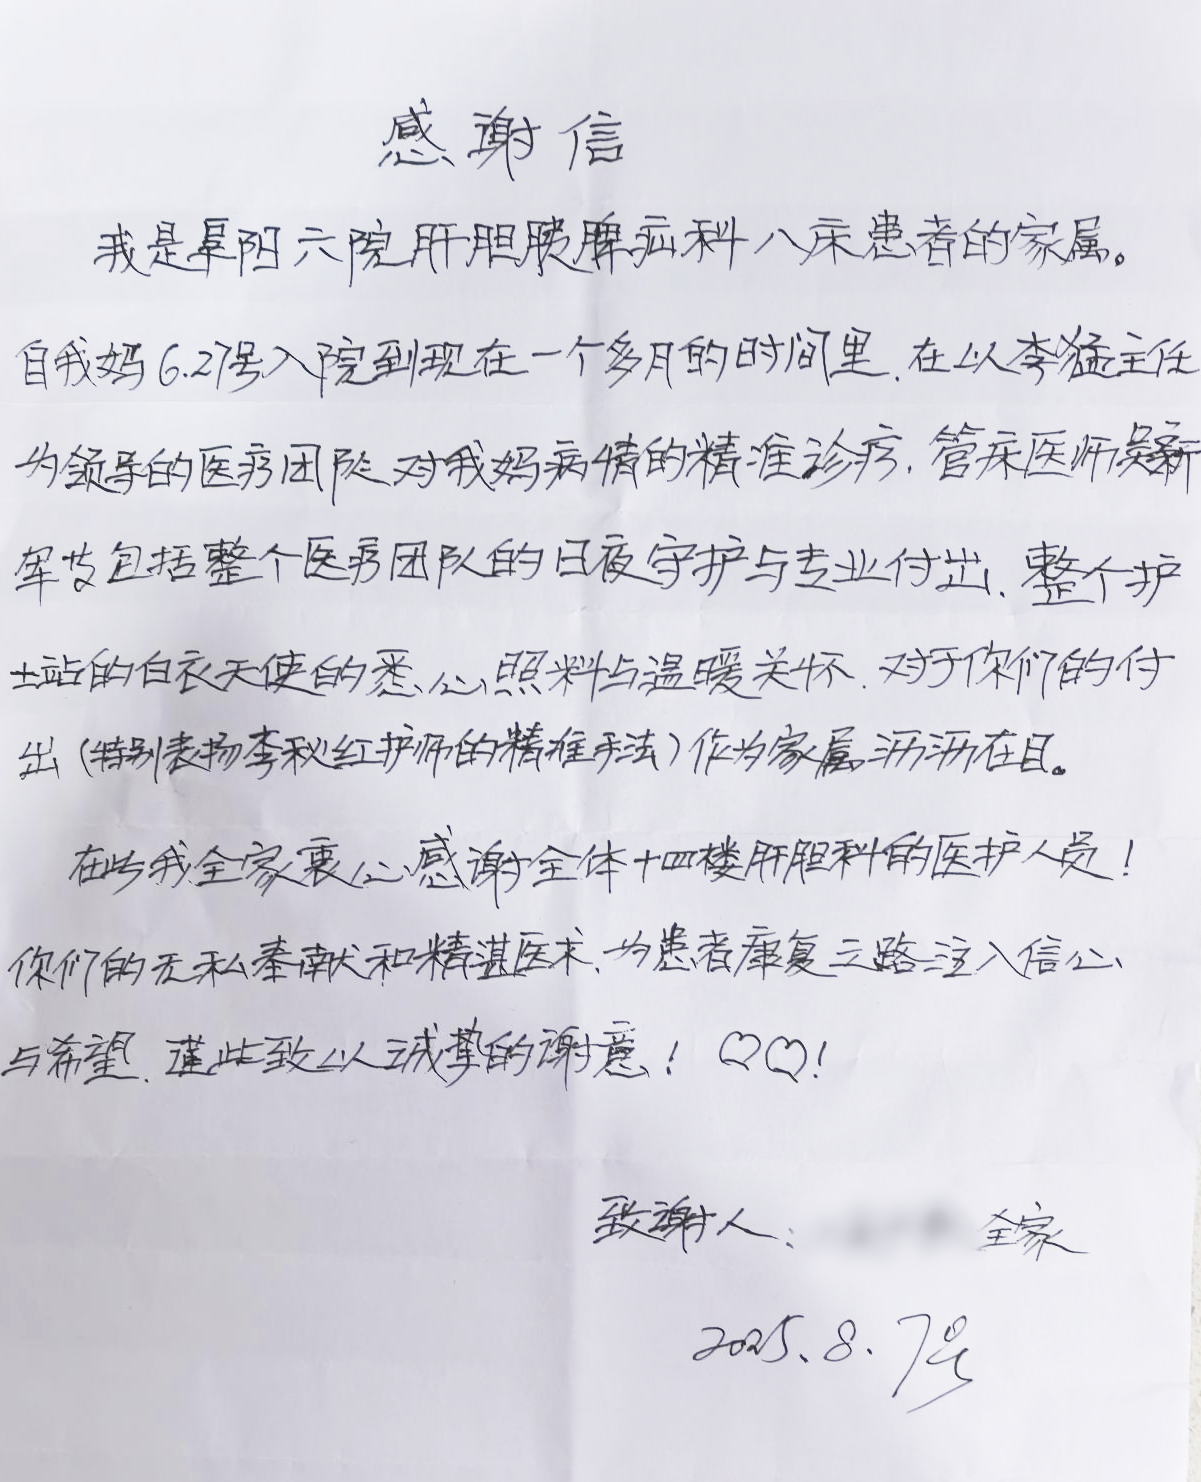 感谢信
我是阜阳六院肝胆胰脾疝科八床患者的家属。
自我妈6.27号入院到现在一个多月的时间里.在以李猛主任
为领导的医疗团队对我妈病情的精准诊疗.管床医师吴新
军及包括整个医疗团队的日夜守护与专业付出.整个护
士站的白衣天使的悉心照料与温暖关怀.对于你们的付
出(特别表扬李秋红护师的精准手法)作为家属沥沥在目。
在此我全家衷心感谢全体十四楼肝胆科的医护人员!
你们的无私奉献和精湛医术.为患者康复之路注入信心
与希望.谨此致以诚挚的谢意!♡♡!
致谢人: 全家
2025.8.7号